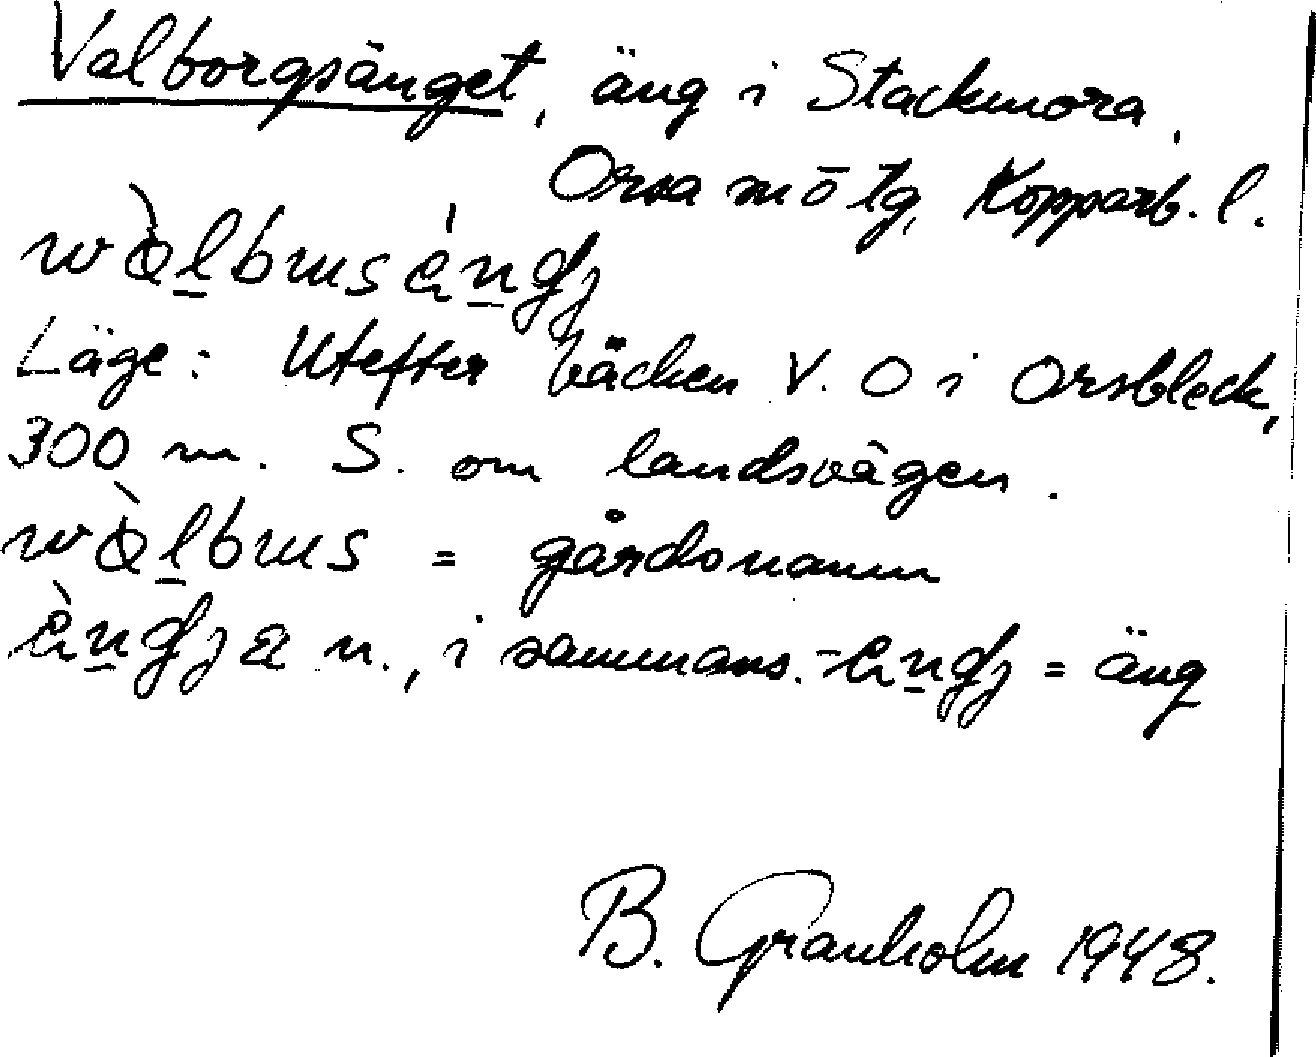 Valborgsänget, äng i Stackmora,
Orsa m ö tg, Kopparb. l.
Läge: Utefter bäcken V. O i Orsbleck,
300 m. S. om landsvägen.
= gårdsnamn
n., i sammans. = äng
B. Granholm 1948.